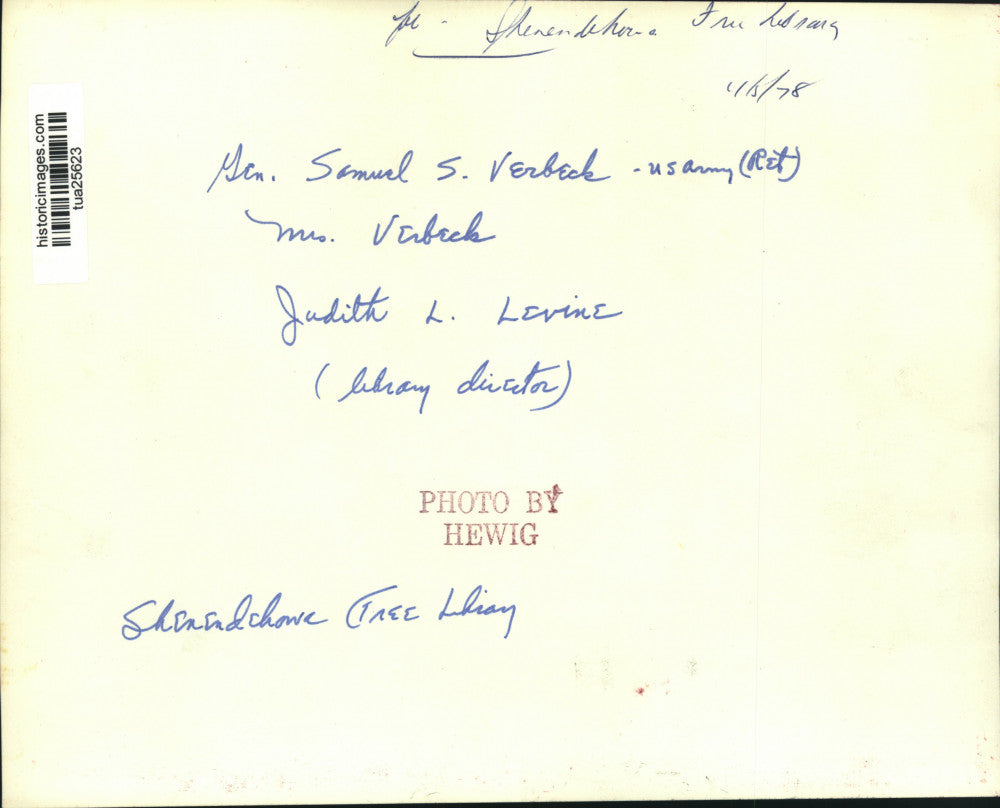 Shenendehowa Free Library
Gen. Samuel S. Verbeck - US Army (Ret)
Mrs. Verbeck
Judith L. Levine
(library director)
PHOTO BY
HEWIG
Shenendehowa Free Library
historicimages.com
tua25623